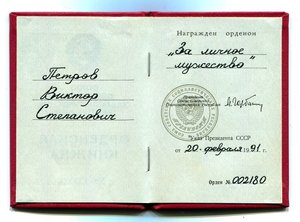 Петров
Виктор
Степанович
Награжден орденом
„За личное
мужество“
Указ Президента СССР
от 20 февраля 1991 г.
Орден № 002180